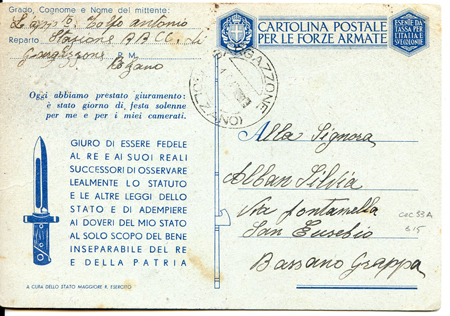 Grado, Cognome e Nome del mittente:
antonio
Reparto Stazione CC. di
P. M.
Oggi abbiamo prestato giuramento:
è stato giorno di festa solenne
per me e per i miei camerati.
GIURO DI ESSERE FEDELE
AL RE E AI SUOI REALI
SUCCESSORI DI OSSERVARE
LEALMENTE LO STATUTO
E LE ALTRE LEGGI DELLO
STATO E DI ADEMPIERE
AI DOVERI DEL MIO STATO
AL SOLO SCOPO DEL BENE
INSEPARABILE DEL RE
E DELLA PATRIA
A CURA DELLO STATO MAGGIORE R. ESERCITO
CARTOLINA POSTALE
PER LE FORZE ARMATE
ESENTE DA
TASSA PER
L'ITALIA E
SVE COLONIE
GARGAZZONE
Alla Signora
Alban Silvia
Via fontanella
San Eusebio
Bassano Grappa
CEC 53A